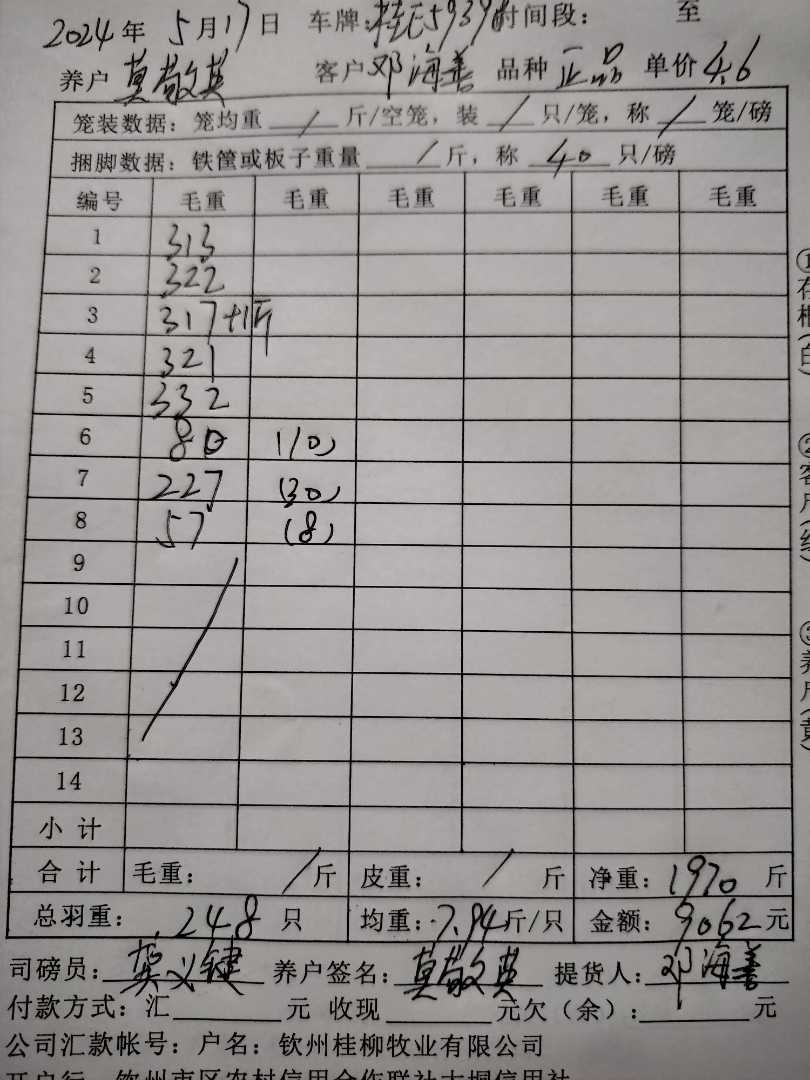 2024年 5月17日 车牌:桂E5939 时间段: 至
养户 莫敬英 客户 邓海善 品种 正品 单价 4.6
笼装数据: 笼均重 / 斤/空笼, 装 / 只/笼, 称 / 笼/磅
捆脚数据: 铁筐或板子重量 / 斤, 称 40 只/磅
编号 毛重 毛重 毛重 毛重 毛重 毛重
1 313
2 322
3 317+1斤
4 321
5 332
6 80 (10)
7 227 (30)
8 57 (8)
9
10
11
12
13
14
小计
合计 毛重: / 斤 皮重: / 斤 净重: 1970 斤
总羽重: 248 只 均重: 7.94 斤/只 金额: 9062 元
司磅员: 龚义键 养户签名: 莫敬英 提货人: 邓海善
付款方式: 汇 元 收现 元欠(余): 元
公司汇款帐号: 户名: 钦州桂柳牧业有限公司
开户行: 钦州市区农村信用合作联社大垌信用社
①存根(白)
②客户(红)
③养户(黄)